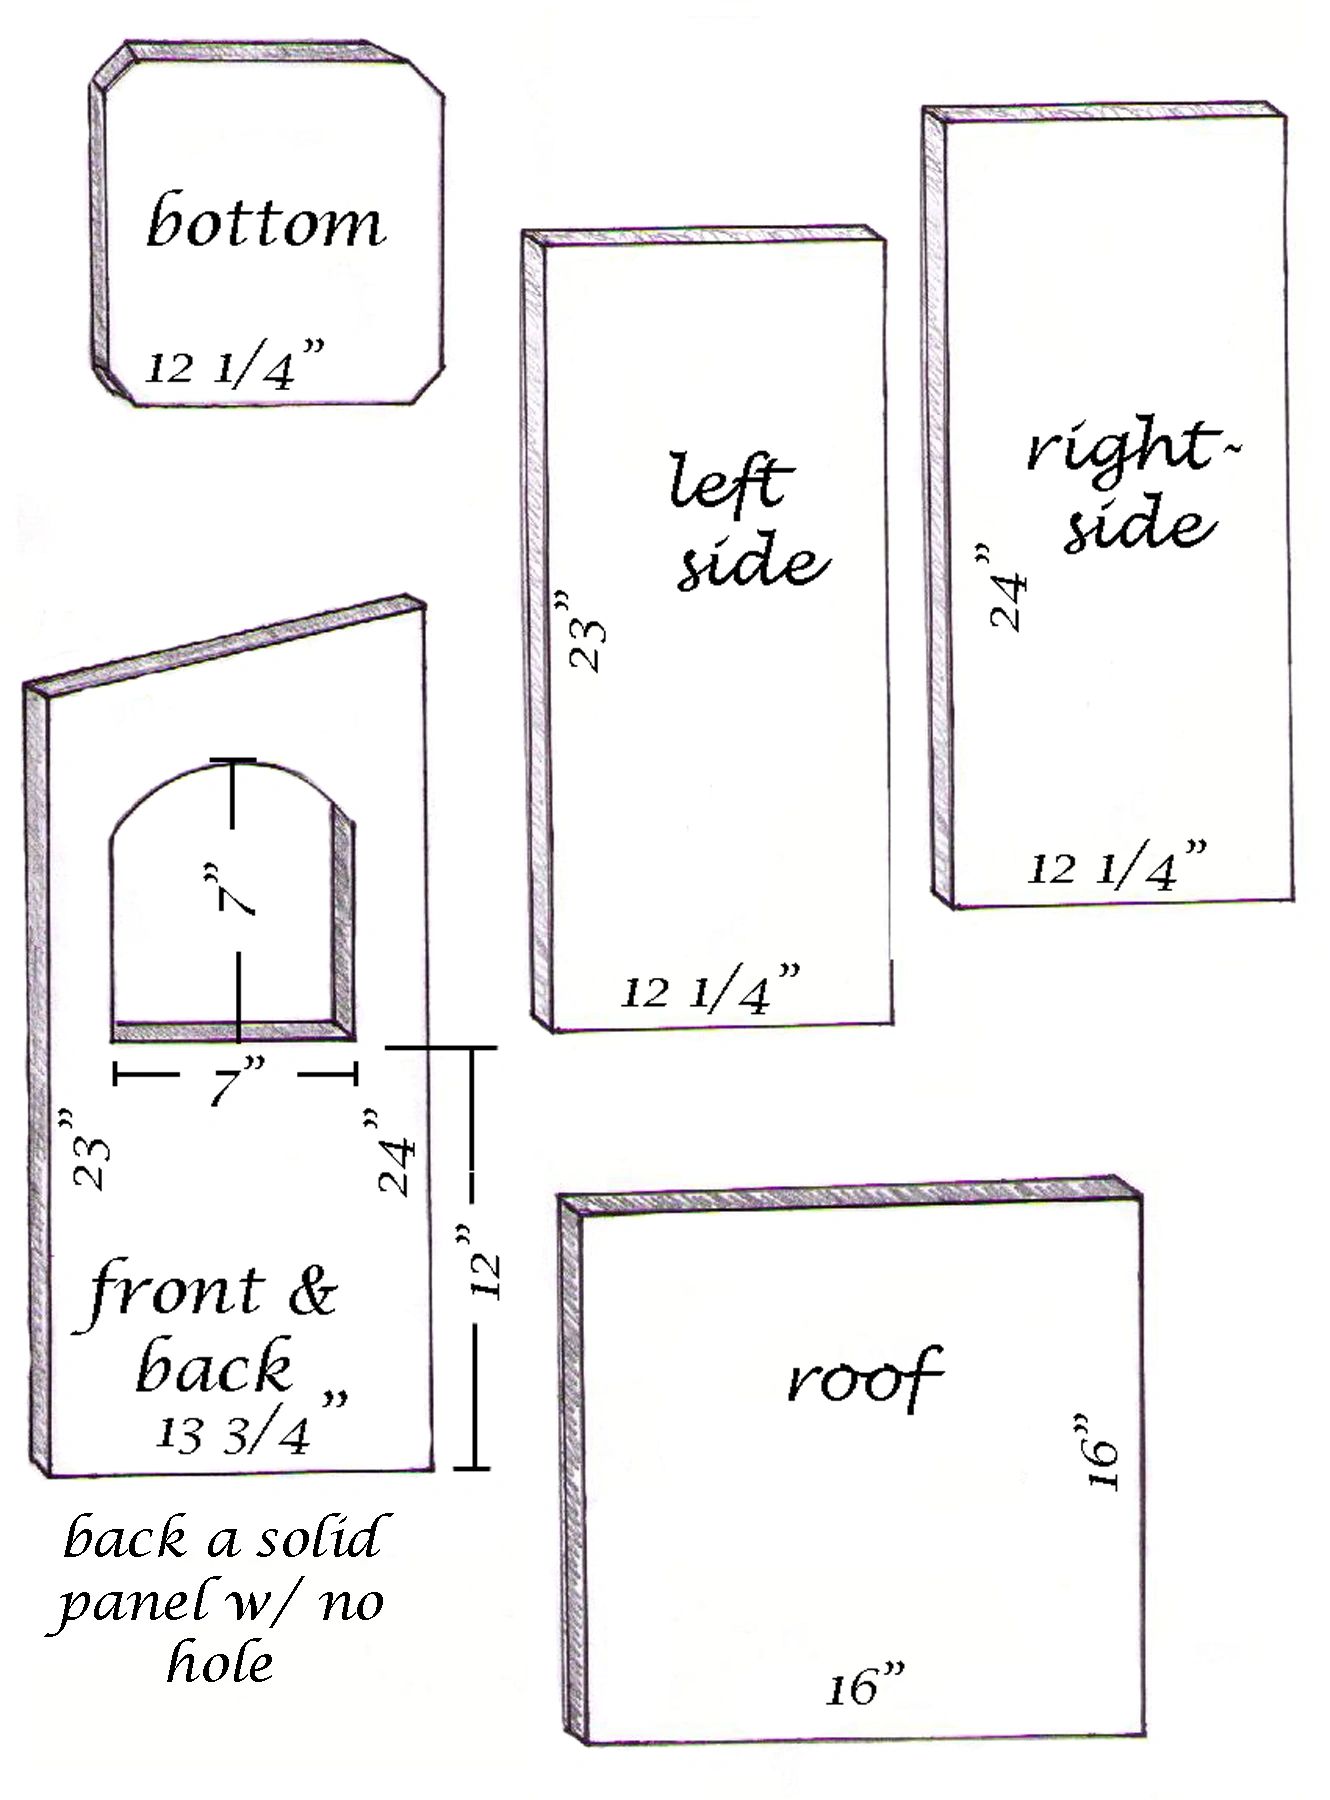 bottom
12 1/4”
left
side
23”
12 1/4”
right-
side
24”
12 1/4”
7”
7”
23”
24”
12”
front &
back
13 3/4”
back a solid
panel w/ no
hole
roof
16”
16”